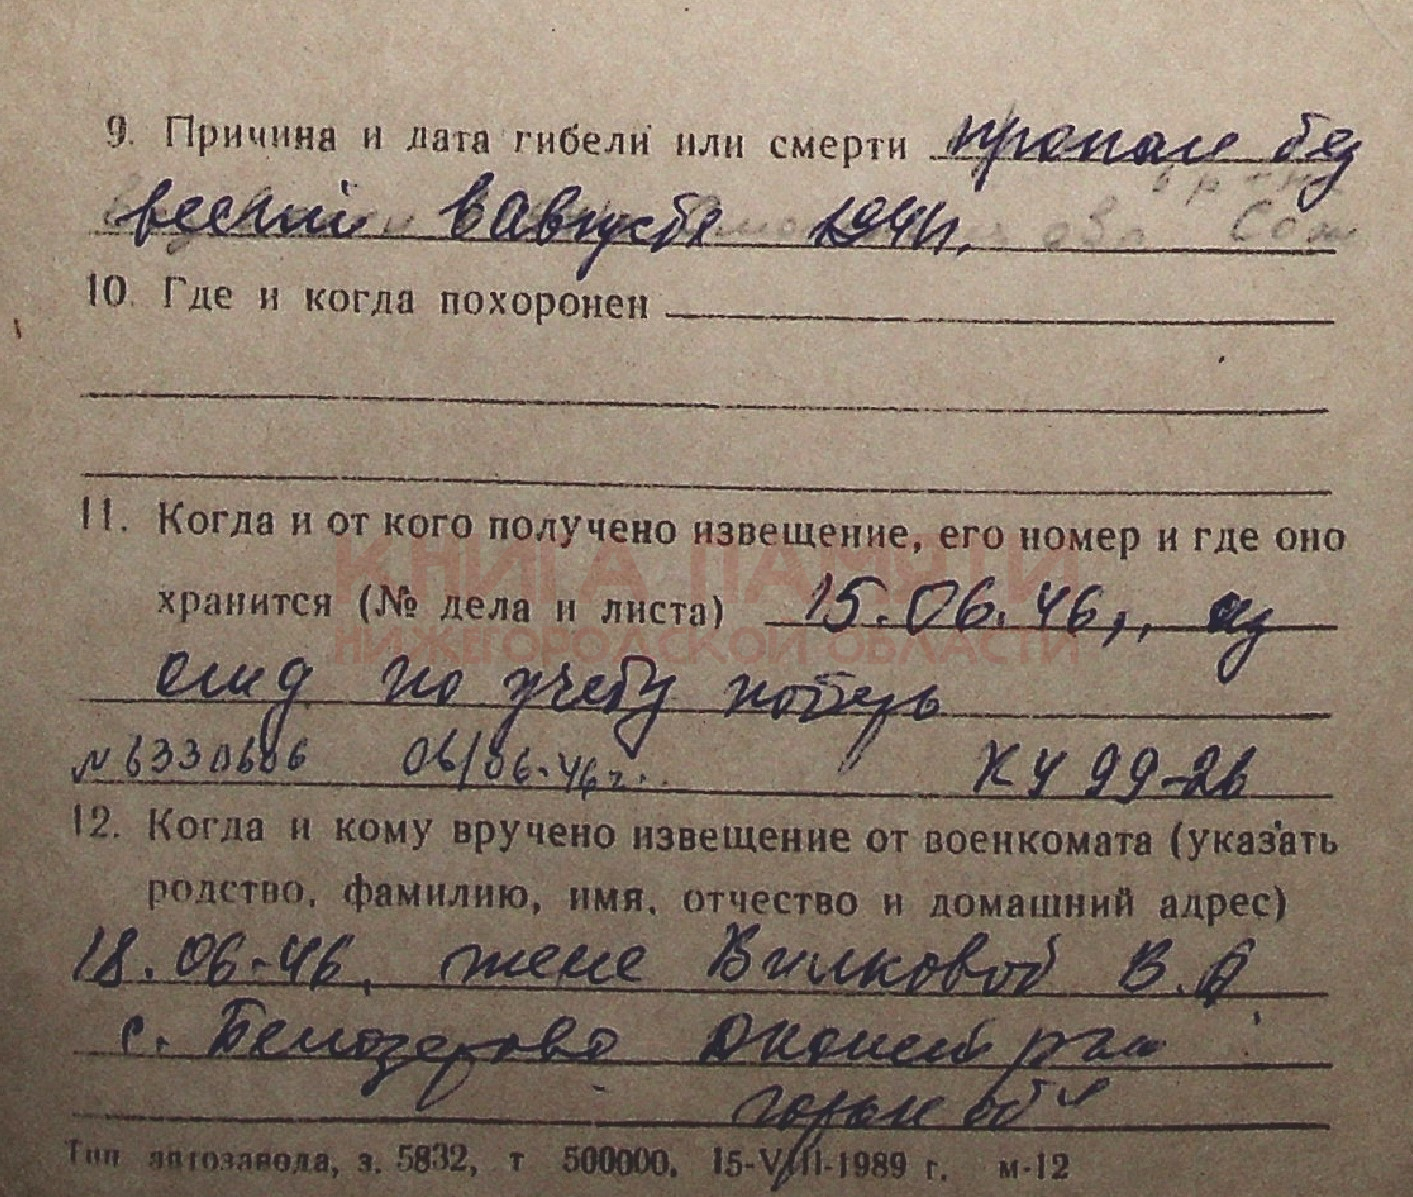 9. Причина и дата гибели или смерти пропал без
вести в августе 1941г.
10. Где и когда похоронен
11. Когда и от кого получено извещение, его номер и где оно
КНИГА ПАМЯТИ
хранится (№ дела и листа) 15.06.46, из
НИЖЕГОРОДСКОЙ ОБЛАСТИ
по учету потерь
№ 6330606 06/06-46г. КУ 99-26
12. Когда и кому вручено извещение от военкомата (указать
родство, фамилию, имя, отчество и домашний адрес)
18.06-46, жене Вилковой В.А
с. Белозерово
Тип автозавода, з. 5832, т 500000, 15-VIII-1989 г. м-12